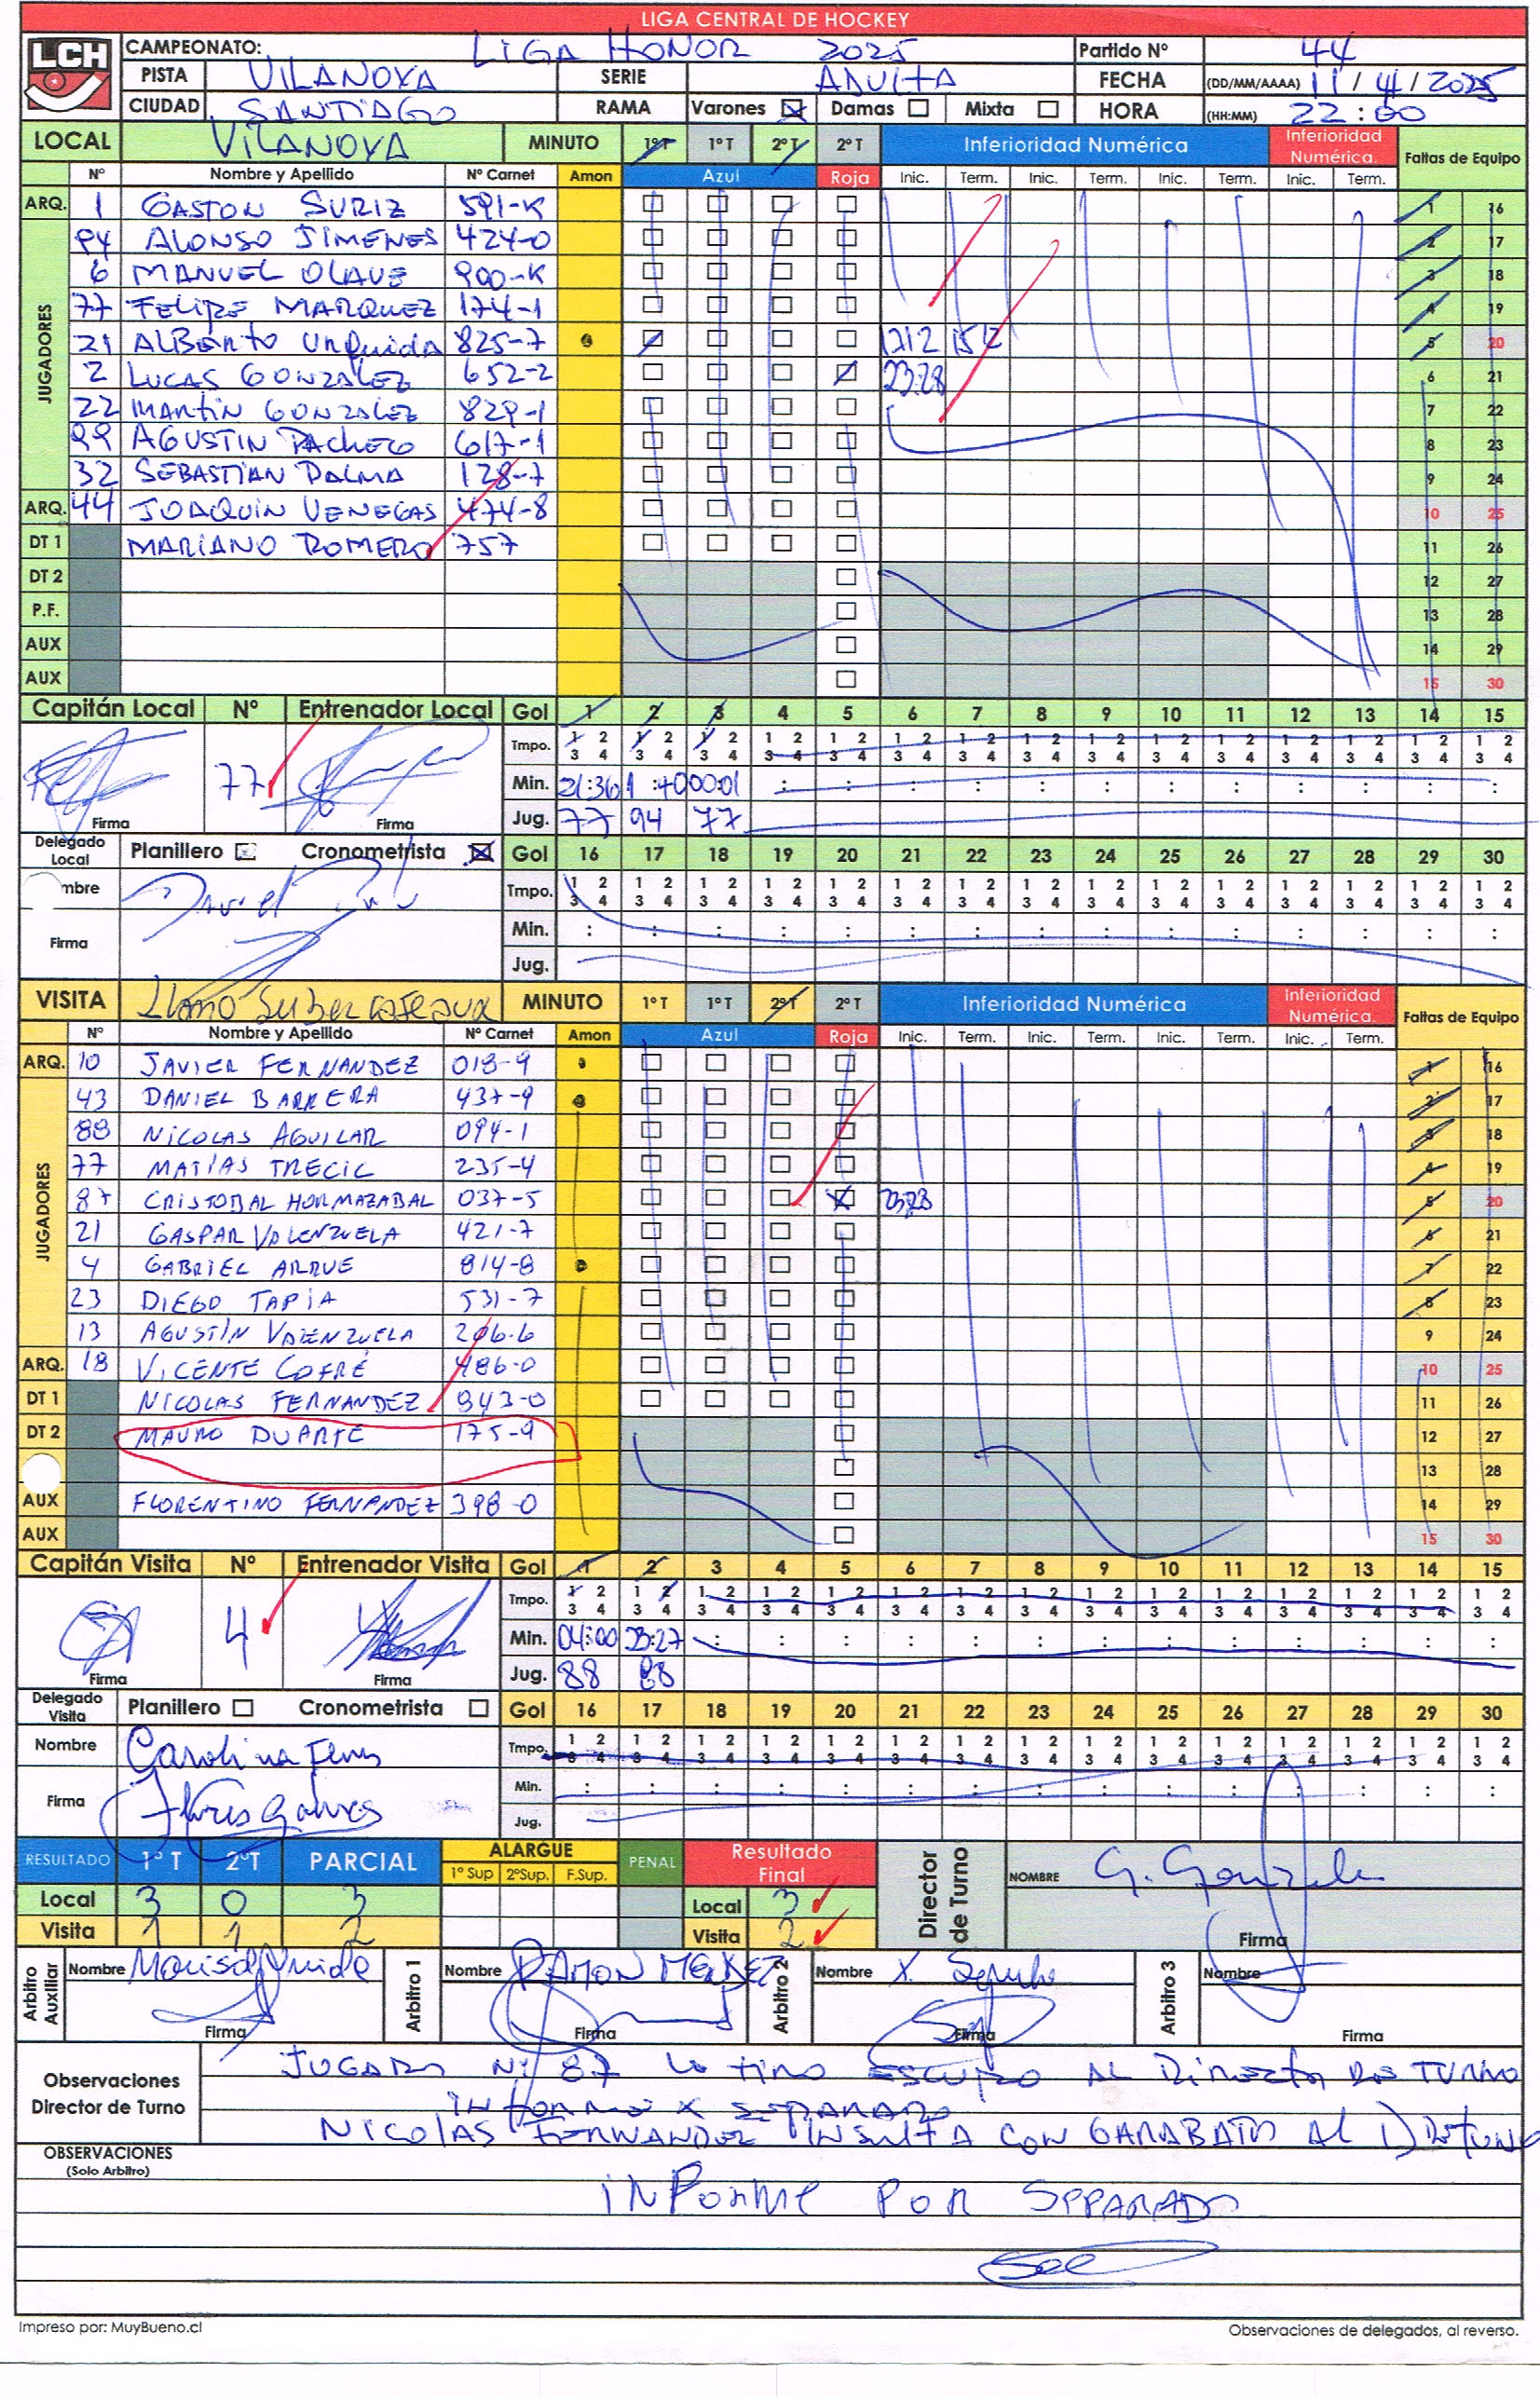 LIGA CENTRAL DE HOCKEY
LCH
CAMPEONATO: LIGA HONOR 2025 Partido Nº 44
PISTA VILANOVA SERIE ADULTA FECHA (DD/MM/AAAA) 11/4/2025
CIUDAD SANTIAGO RAMA Varones Damas Mixta HORA (HH:MM) 22:00
LOCAL VILANOVA MINUTO 1ºT 1ºT 2ºT 2ºT Inferioridad Numérica Inferioridad Numérica. Faltas de Equipo
Nº Nombre y Apellido Nº Carnet Amon Azul Roja Inic. Term. Inic. Term. Inic. Term. Inic. Term.
ARQ. 1 GASTON SURIZ 591-K 1 16
JUGADORES
94 ALONSO JIMENES 424-0 2 17
6 MANUEL OLAVE 900-K 3 18
77 FELIPE MARQUEZ 174-1 4 19
21 ALBERTO Urquida 825-7 1212 1512 5 20
2 LUCAS GONZALEZ 652-2 23:28 6 21
22 MARTIN GONZALEZ 829-1 7 22
99 AGUSTIN PACHECO 617-1 8 23
32 SEBASTIAN PALMA 128-7 9 24
ARQ. 44 JOAQUIN VENEGAS 474-8 10 25
DT 1 MARIANO ROMERO 757 11 26
DT 2 12 27
P.F. 13 28
AUX 14 29
AUX 15 30
Capitán Local Nº Entrenador Local Gol 1 2 3 4 5 6 7 8 9 10 11 12 13 14 15
Tmpo. 1 2 3 4 1 2 3 4 1 2 3 4 1 2 3 4 1 2 3 4 1 2 3 4 1 2 3 4 1 2 3 4 1 2 3 4 1 2 3 4 1 2 3 4 1 2 3 4 1 2 3 4 1 2 3 4 1 2 3 4
77 Min. 21:36 1:40 00:01 : : : : : : : : : : : :
Firma Firma Jug. 77 94 77
Delegado Local Planillero Cronometrista Gol 16 17 18 19 20 21 22 23 24 25 26 27 28 29 30
mbre Tmpo. 1 2 3 4 1 2 3 4 1 2 3 4 1 2 3 4 1 2 3 4 1 2 3 4 1 2 3 4 1 2 3 4 1 2 3 4 1 2 3 4 1 2 3 4 1 2 3 4 1 2 3 4 1 2 3 4 1 2 3 4
Firma Min. : : : : : : : : : : : : : : :
Jug.
VISITA Llano Subercaseaux MINUTO 1ºT 1ºT 2ºT 2ºT Inferioridad Numérica Inferioridad Numérica. Faltas de Equipo
Nº Nombre y Apellido Nº Carnet Amon Azul Roja Inic. Term. Inic. Term. Inic. Term. Inic. Term.
ARQ. 10 JAVIER FERNANDEZ 018-9 1 16
JUGADORES
43 DANIEL BARRERA 437-9 2 17
88 NICOLAS AGUILAR 094-1 3 18
77 MATIAS TRECIC 235-4 4 19
87 CRISTOBAL HORMAZABAL 037-5 5 20
21 GASPAR VALENZUELA 421-7 6 21
4 GABRIEL ARRUE 814-8 7 22
23 DIEGO TAPIA 531-7 8 23
13 AGUSTIN VALENZUELA 206-6 9 24
ARQ. 18 VICENTE COFRÉ 486-0 10 25
DT 1 NICOLAS FERNANDEZ 943-0 11 26
DT 2 MAURO DUARTE 175-9 12 27
13 28
AUX FLORENTINO FERNANDEZ 398-0 14 29
AUX 15 30
Capitán Visita Nº Entrenador Visita Gol 1 2 3 4 5 6 7 8 9 10 11 12 13 14 15
Tmpo. 1 2 3 4 1 2 3 4 1 2 3 4 1 2 3 4 1 2 3 4 1 2 3 4 1 2 3 4 1 2 3 4 1 2 3 4 1 2 3 4 1 2 3 4 1 2 3 4 1 2 3 4 1 2 3 4 1 2 3 4
4 Min. 04:00 23:27 : : : : : : : : : : : : :
Firma Firma Jug. 88 88
Delegado Visita Planillero Cronometrista Gol 16 17 18 19 20 21 22 23 24 25 26 27 28 29 30
Nombre Carolina Tmpo. 1 2 3 4 1 2 3 4 1 2 3 4 1 2 3 4 1 2 3 4 1 2 3 4 1 2 3 4 1 2 3 4 1 2 3 4 1 2 3 4 1 2 3 4 1 2 3 4 1 2 3 4 1 2 3 4 1 2 3 4
Firma Min. : : : : : : : : : : : : : : :
Jug.
RESULTADO 1º T 2ºT PARCIAL ALARGUE 1º Sup 2ºSup. F.Sup. PENAL Resultado Final Director de Turno NOMBRE G.
Local 3 0 3 Local 3
Visita 1 1 2 Visita 2 Firma
Arbitro Auxiliar Nombre Arbitro 1 Nombre RAMON Arbitro 2 Nombre X. Arbitro 3 Nombre
Firma Firma Firma Firma
Observaciones Director de Turno
JUGADOR Nº 87 LE TIRO ESCUPO AL DIRECTOR DE TURNO
INFORME X SEPARADO
NICOLAS FERNANDEZ INSULTA CON GARABATO AL D DE TURNO
OBSERVACIONES (Solo Arbitro)
INFORME POR SEPARADO
Impreso por: MuyBueno.cl Observaciones de delegados, al reverso.